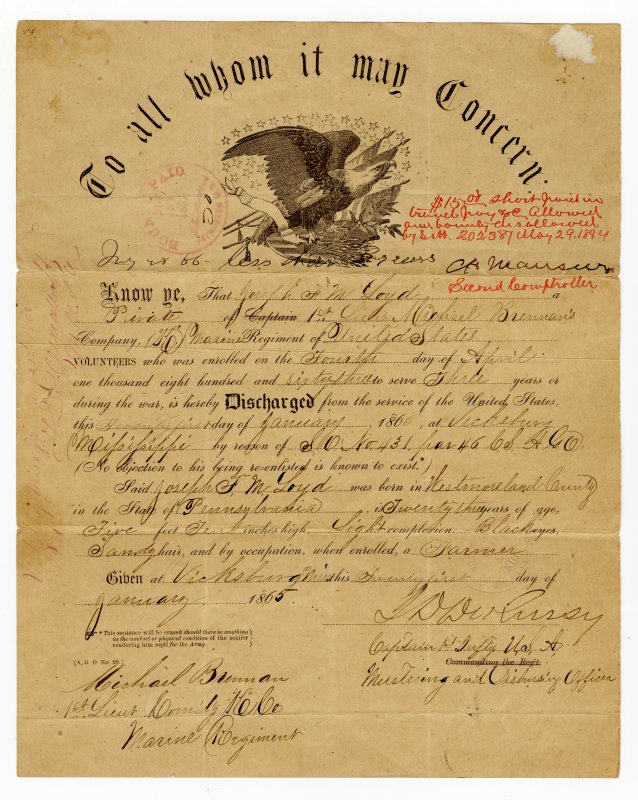 To all whom it may Concern.
PAID
$15.00 short paid in
travel pay &c Allowed
and bounty disallowed
by Sett. 202387 May 29. 1894
less than 2 years
C H Mansur
Second Comptroller
Know ye, That Joseph F. McLoyd a
Private of Captain 1st Lieut Michael Brennan's
Company, (K), Marine Regiment of United States
VOLUNTEERS who was enrolled on the Fourth day of April
one thousand eight hundred and sixty three to serve Three years or
during the war, is hereby Discharged from the service of the United States,
this Twenty first day of January, 1865, at Vicksburg
Mississippi by reason of S.O. No 431, par 46 C.S. A.G.O.
(No objection to his being re-enlisted is known to exist.*)
Said Joseph F. McLoyd was born in Westmoreland County
in the State of Pennsylvania, is Twenty three years of age,
Five feet Ten inches high, Light complexion, Black eyes,
Sandy hair, and by occupation, when enrolled, a Farmer
Given at Vicksburg Miss this Twenty first day of
January 1865
* This sentence will be erased should there be anything
in the conduct or physical condition of the soldier
rendering him unfit for the Army.
[A. G. O. No. 99.]
Captain 1st Infty U.S.A
Commanding the Reg't.
Mustering and Disbursing Officer
Michael Brennan
1st Lieut Comdg "K" Co
Marine Regiment